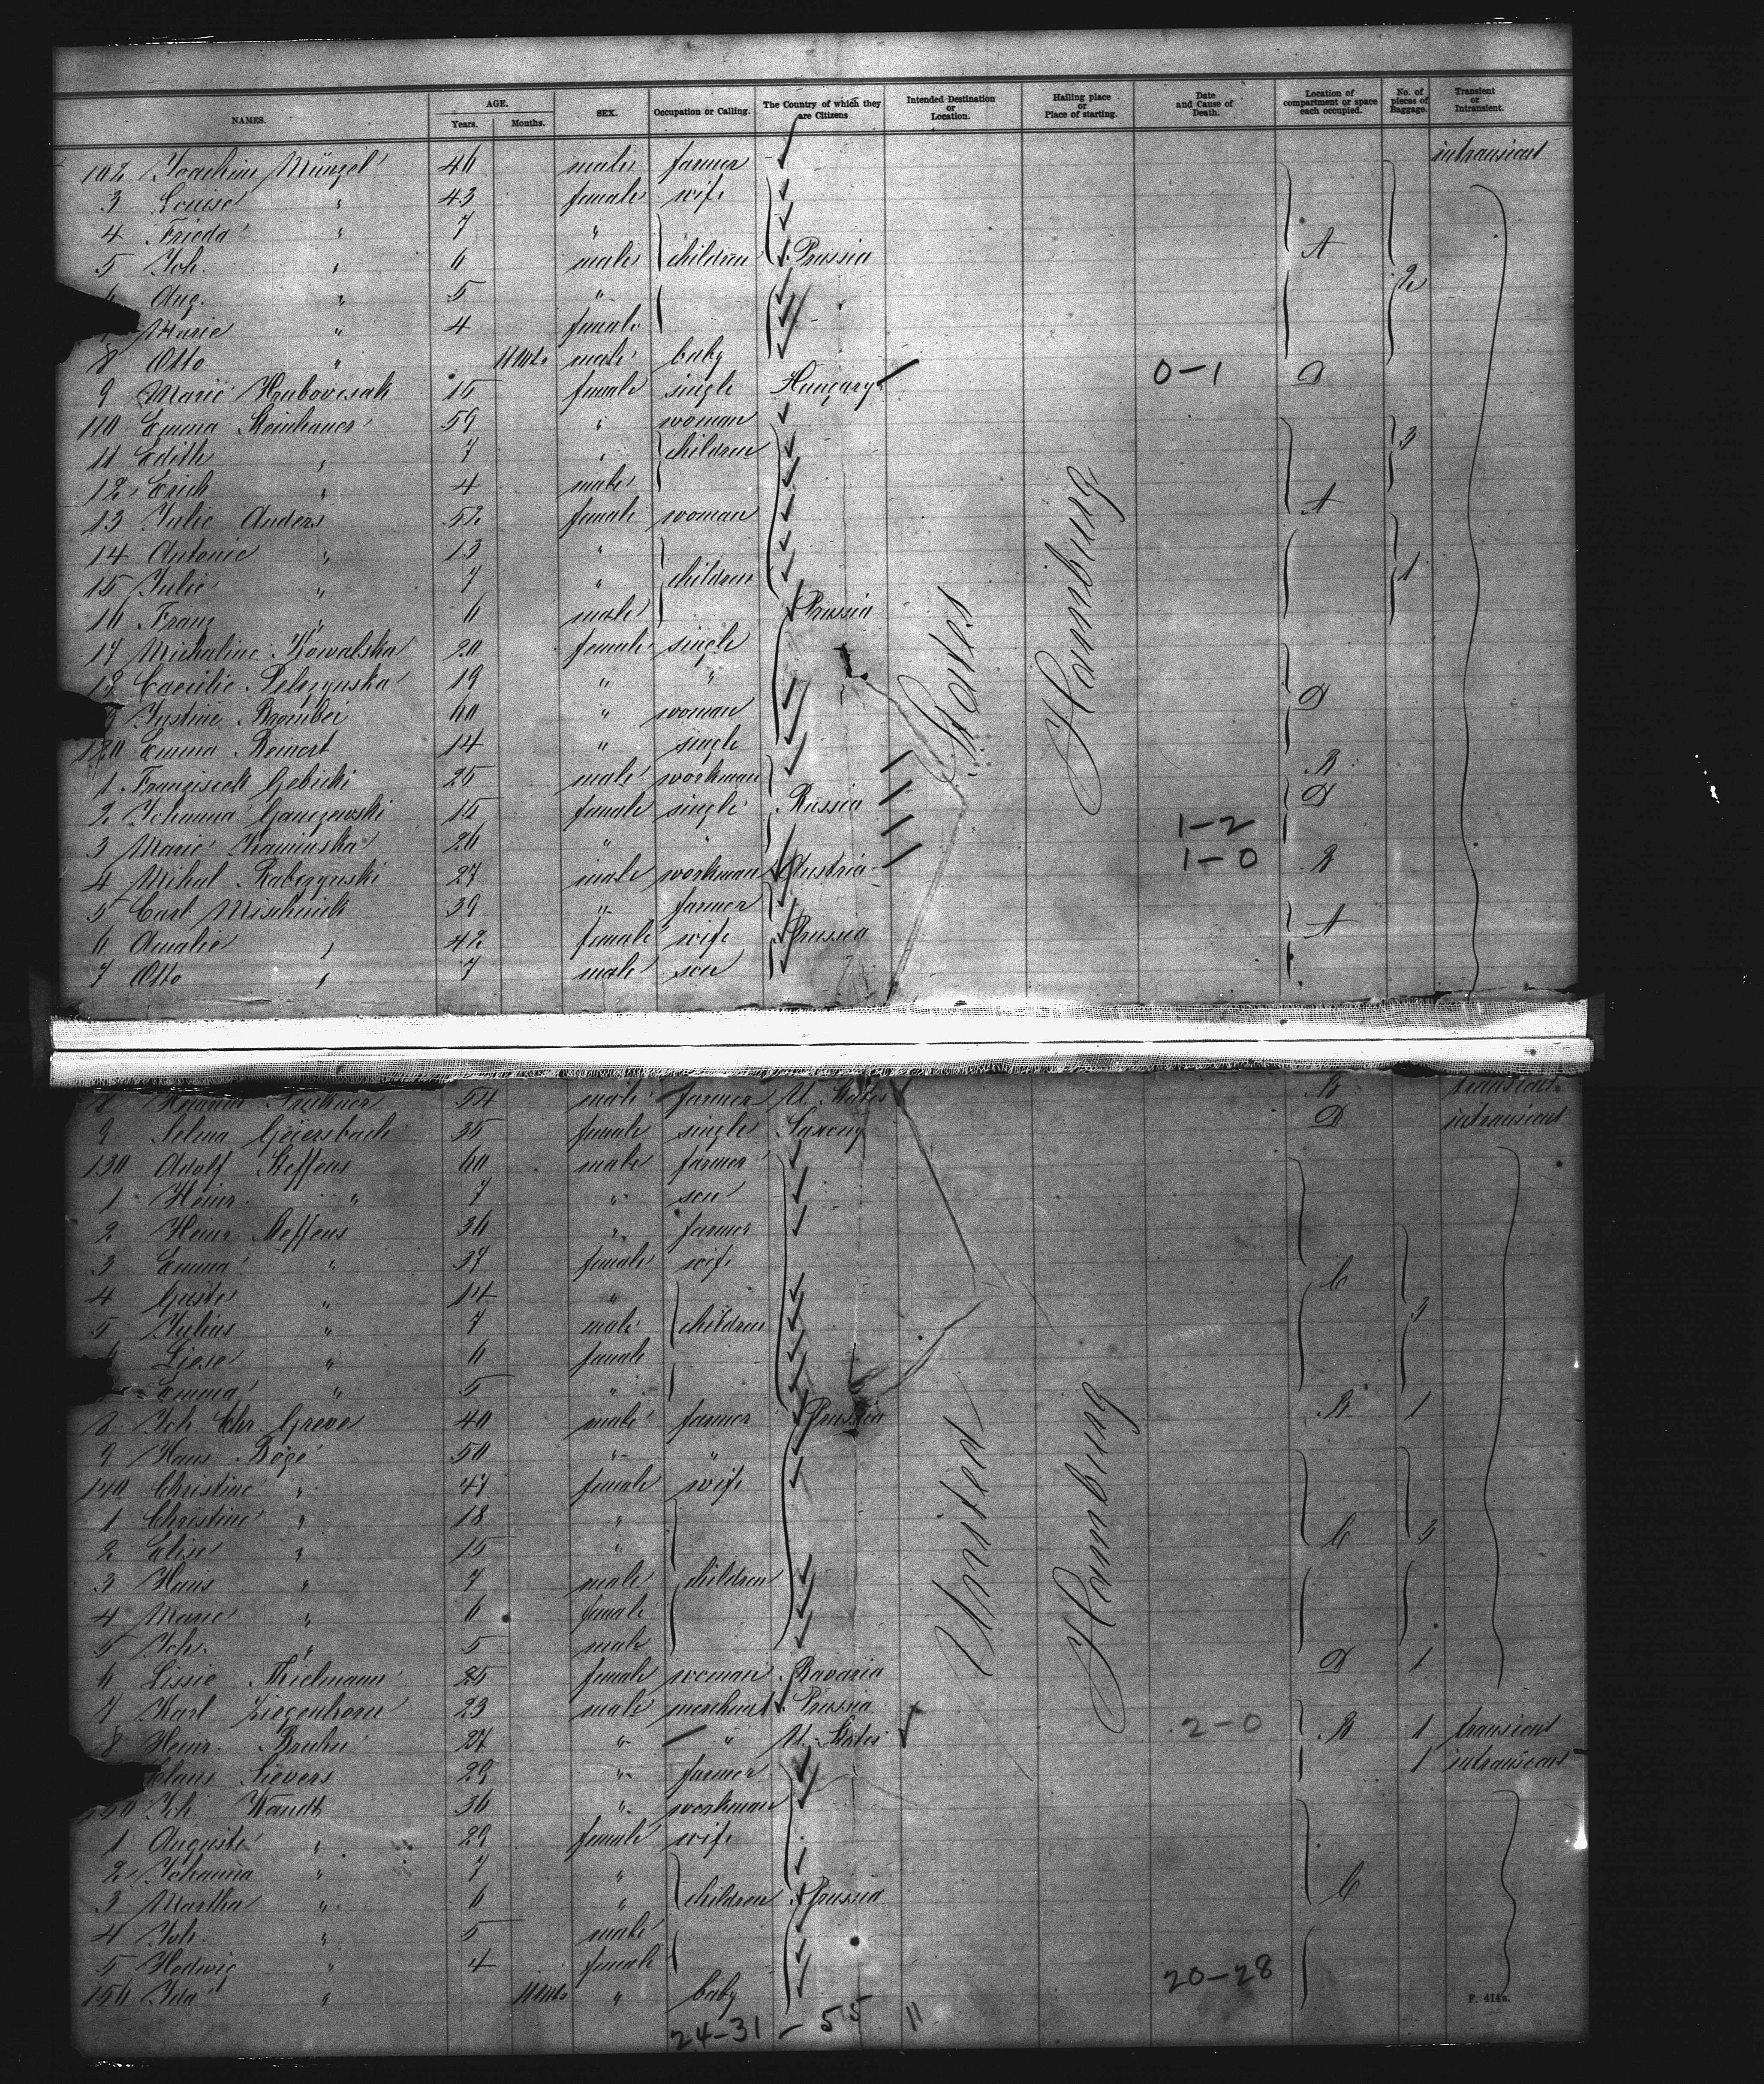 NAMES. AGE. Years. Months. SEX. Occupation or Calling. The Country of which they are Citizens Intended Destination or Location. Hailing place or Place of starting. Date and Cause of Death. Location of compartment or space each occupied. No. of pieces of Baggage. Transient or Intransient.
102 Joachim Münzel 46 male farmer intransient
3 Louise " 43 female wife
4 Frieda " 7 "
5 Joh. " 6 male children Prussia A
Aug. " 5 " 2
Marie " 4 female
8 Otto " 11 Mts male baby
9 Marie Hrubovcsak 15 female single Hungary 0-1 D
110 Emma Steinhauer 59 " woman
11 Edith " 7 " children 3
12 Erich " 4 male
13 Julie Anders 52 female woman A
14 Antonie " 13 "
15 Julie " 7 " children 1
16 Franz " 6 male Prussia
17 Michaline Kowalska 20 female single
18 Caecilie Pelszynska 19 " "
Justine Brombei 60 " woman D
120 Emma Reinert 14 " single
1 Franziscek Gebicki 25 male workman B
2 Johanna Ganczewski 15 female single Russia D
3 Marie Kaminska 26 " " 1-2
4 Mihal Rabczynski 27 male workman Austria 1-0 B
5 Carl Mischnick 39 " farmer
6 Amalie " 42 female wife Prussia A
7 Otto " 7 male son
United States
Hamburg
8 54 male farmer U. States B transient
9 Selma Geiersbach 35 female single Saxony D intransient
130 Adolf Steffens 60 male farmer
1 Heinr. " 7 " son
2 Heinr. Steffens 36 " farmer
3 Emma " 37 female wife
4 Guste " 14 " C
5 Julius " 7 male children 3
Liese " 6 female
Emma " 5 "
8 Joh. Chr. Greve 40 male farmer Prussia B 1
9 Hans Böge 50 " "
140 Christine " 47 female wife
1 Christine " 18 "
2 Elise " 15 " C 3
3 Hans " 7 male children
4 Marie " 6 female
5 Joh. " 5 male
6 Lissie Thielmann 25 female woman Bavaria D 1
7 Karl Ziegenhorn 23 male merchant Prussia
8 Heinr. Bruhn 27 " " U. States 2-0 B 1 transient
Claus Sievers 29 " farmer 1 intransient
150 Joh. Wandt 36 " workman
1 Auguste " 29 female wife
2 Johanna " 7 "
3 Martha " 6 " children Prussia C
4 Joh. " 5 male
5 Hedwig " 4 female
156 Ida " 11 Mts " baby 20-28
Hamburg
F. 414a.
24-31 - 55 11